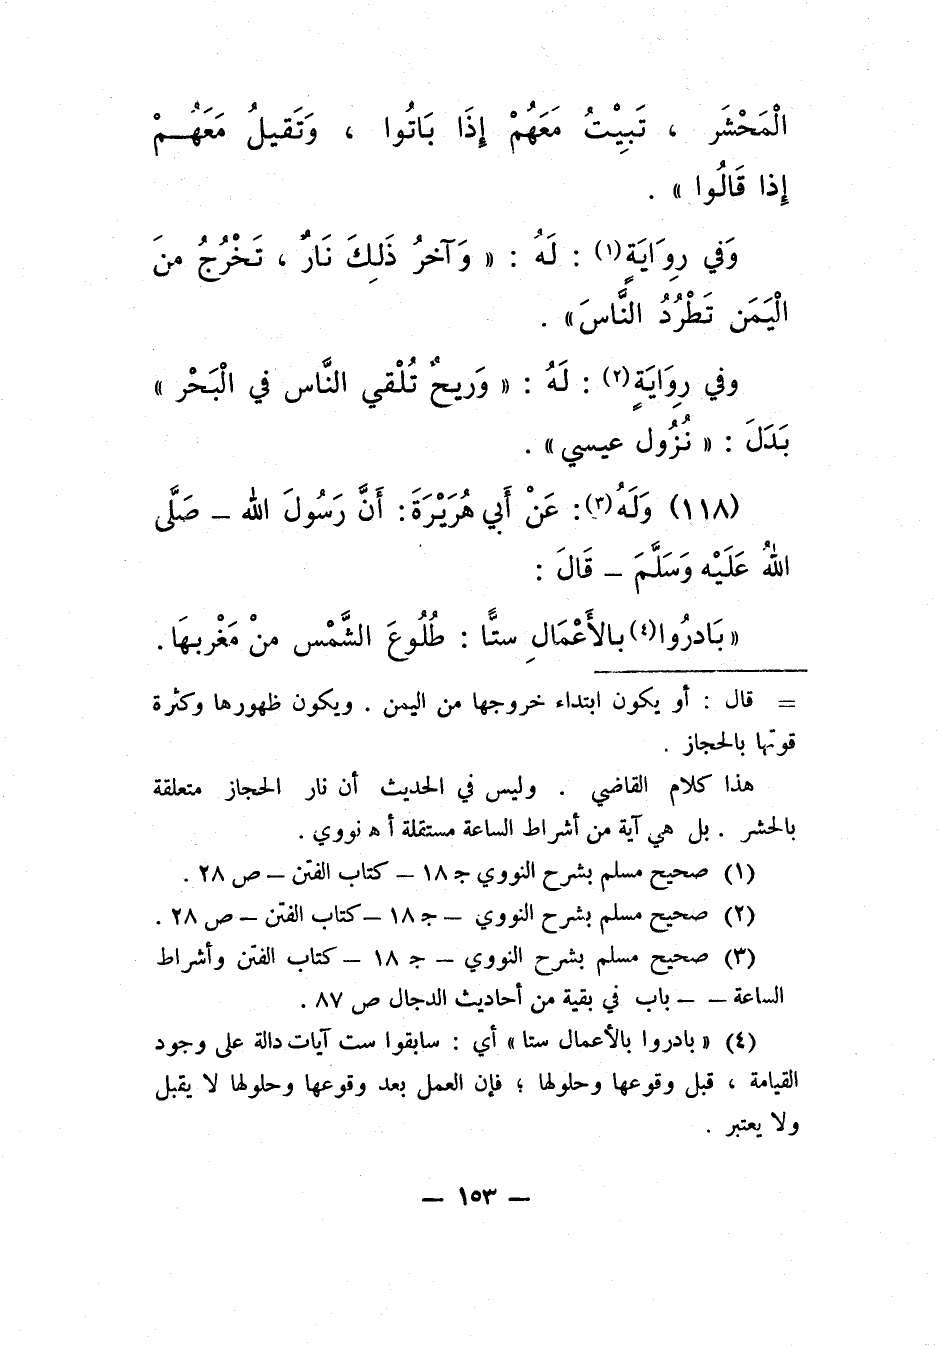 الْمَحْشَر ، تَبِيْتُ مَعَهُمْ إِذَا بَاتُوا ، وَتَقيلُ مَعَهُــمْ
إِذا قَالُوا » .
وَفي رِوَايَةٍ(١) : لَهُ : « وَآخرُ ذَلِكَ نَارٌ ، تَخْرُجُ منَ
الْيَمَن تَطْرُدُ النَّاسَ» .
وفي رِوَايَةٍ(٢) : لَهُ : « وَريحٌ تُلْقي النَّاس في الْبَحْر »
بَدَلَ : « نُزُول عيسي» .
(١١٨) وَلَهُ(٣): عَنْ أَبي هُرَيْرَةَ: أَنَّ رَسُولَ الله ــ صَلَّى
اللهُ عَلَيْه وَسَلَّمَ ــ قَالَ :
« بَادرُوا(٤) بالأَعْمَالِ ستًّا : طُلُوعَ الشَّمْس منْ مَغْربهَا .
= قال : أو يكون ابتداء خروجها من اليمن . ويكون ظهورها وكثرة
قوتها بالحجاز .
هذا كلام القاضي . وليس في الحديث أن نار الحجاز متعلقة
بالحشر . بل هي آية من أشراط الساعة مستقلة أ ﻫ نووي .
(١) صحيح مسلم بشرح النووي جـ ١٨ ــ كتاب الفتن ــ ص ٢٨ .
(٢) صحيح مسلم بشرح النووي ــ جـ ١٨ ــ كتاب الفتن ــ ص ٢٨ .
(٣) صحيح مسلم بشرح النووي ــ جـ ١٨ ــ كتاب الفتن وأشراط
الساعة ــ ــ باب في بقية من أحاديث الدجال ص ٨٧ .
(٤) « بادروا بالأعمال ستا » أي : سابقوا ست آيات دالة على وجود
القيامة ، قبل وقوعها وحلولها ؛ فإن العمل بعد وقوعها وحلولها لا يقبل
ولا يعتبر .
ــ ١٥٣ ــ